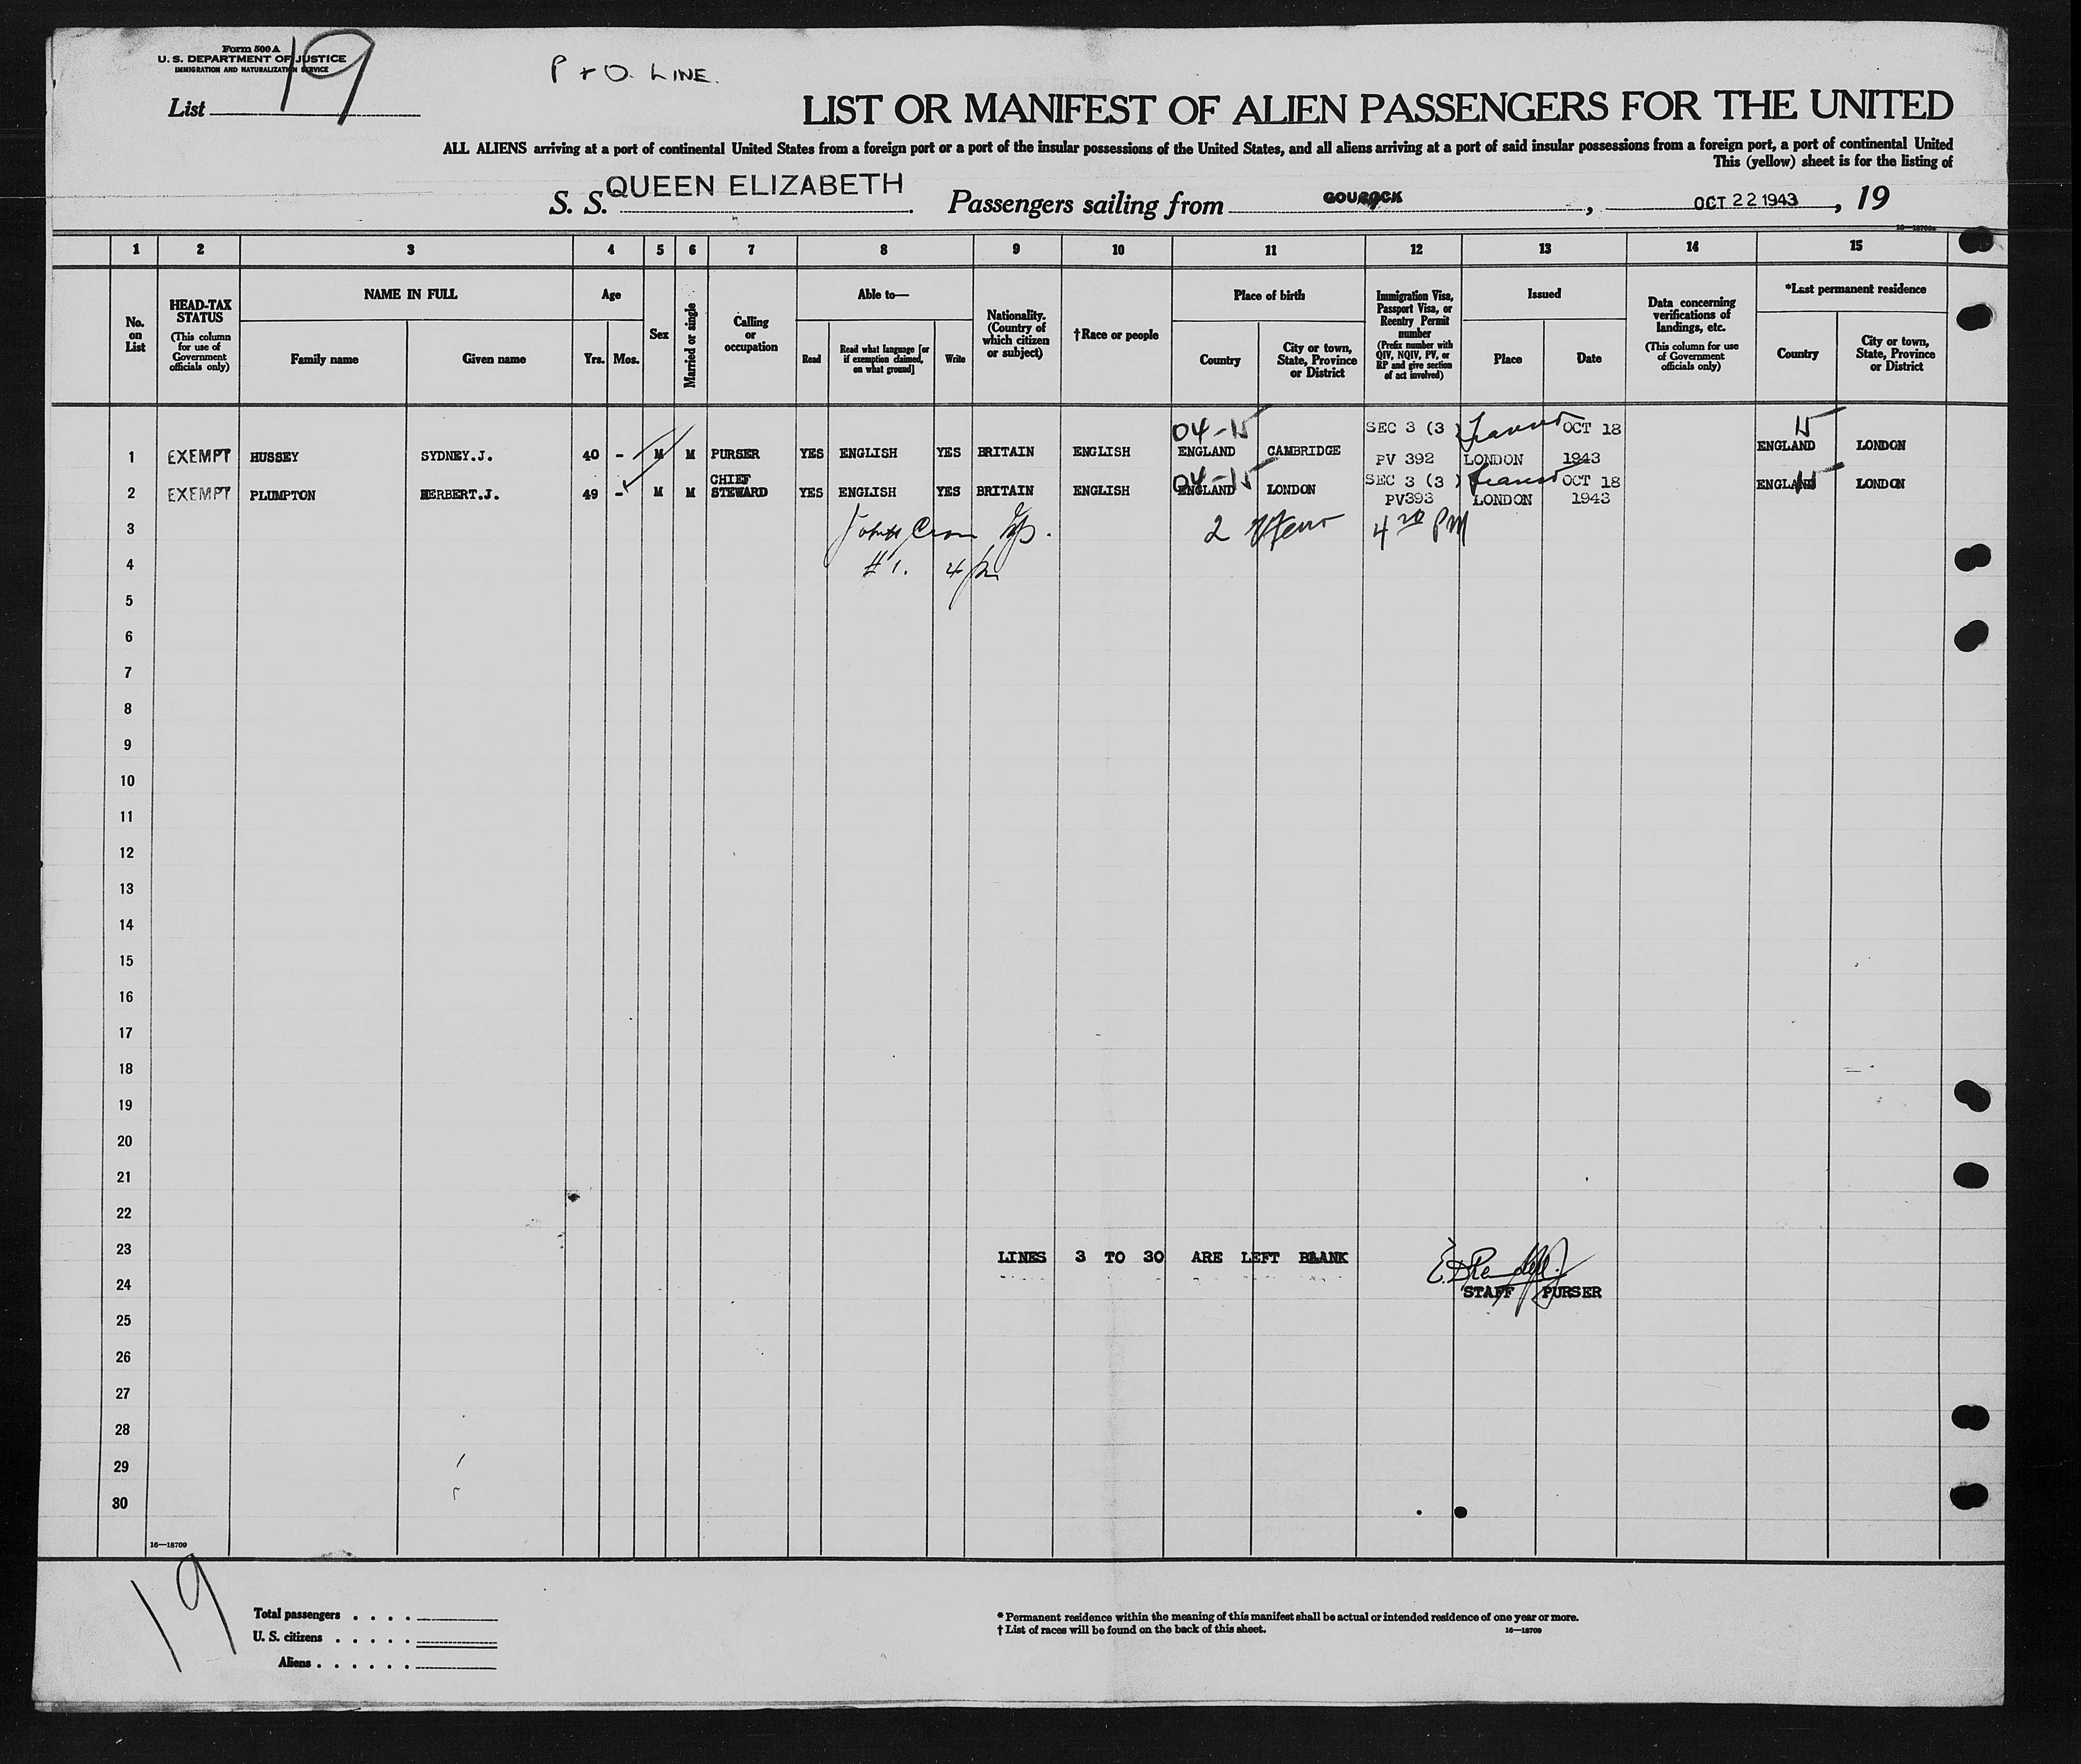 Form 500 A
U. S. DEPARTMENT OF JUSTICE
IMMIGRATION AND NATURALIZATION SERVICE
List 19
P + O. LINE.
LIST OR MANIFEST OF ALIEN PASSENGERS FOR THE UNITED
ALL ALIENS arriving at a port of continental United States from a foreign port or a port of the insular possessions of the United States, and all aliens arriving at a port of said insular possessions from a foreign port, a port of continental United
This (yellow) sheet is for the listing of
S. S. QUEEN ELIZABETH Passengers sailing from GOUROCK, OCT 22 1943, 19
16—18709
1 2 3 4 5 6 7 8 9 10 11 12 13 14 15
No. on List
HEAD-TAX STATUS (This column for use of Government officials only)
NAME IN FULL
Family name Given name
Age
Yrs. Mos.
Sex
Married or single
Calling or occupation
Able to—
Read Read what language [or if exemption claimed, on what ground] Write
Nationality. (Country of which citizen or subject)
†Race or people
Place of birth
Country City or town, State, Province or District
Immigration Visa, Passport Visa, or Reentry Permit number (Prefix number with QIV, NQIV, PV, or RP and give section of act involved)
Issued
Place Date
Data concerning verifications of landings, etc. (This column for use of Government officials only)
*Last permanent residence
Country City or town, State, Province or District
04-15 SEC 3 (3) OCT 18 15
1 EXEMPT HUSSEY SYDNEY.J. 40 - M M PURSER YES ENGLISH YES BRITAIN ENGLISH ENGLAND CAMBRIDGE PV 392 LONDON 1943 ENGLAND LONDON
04-15 SEC 3 (3) OCT 18 15
2 EXEMPT PLUMPTON HERBERT.J. 49 - M M CHIEF STEWARD YES ENGLISH YES BRITAIN ENGLISH ENGLAND LONDON PV393 LONDON 1943 ENGLAND LONDON
3 2 PM
4 #1.
5
6
7
8
9
10
11
12
13
14
15
16
17
18
19
20
21
22
23 LINES 3 TO 30 ARE LEFT BLANK
24 STAFF PURSER
25
26
27
28
29
30
16—18709
19
Total passengers . . . .
U. S. citizens . . . . .
Aliens . . . . . .
* Permanent residence within the meaning of this manifest shall be actual or intended residence of one year or more.
† List of races will be found on the back of this sheet. 16—18709